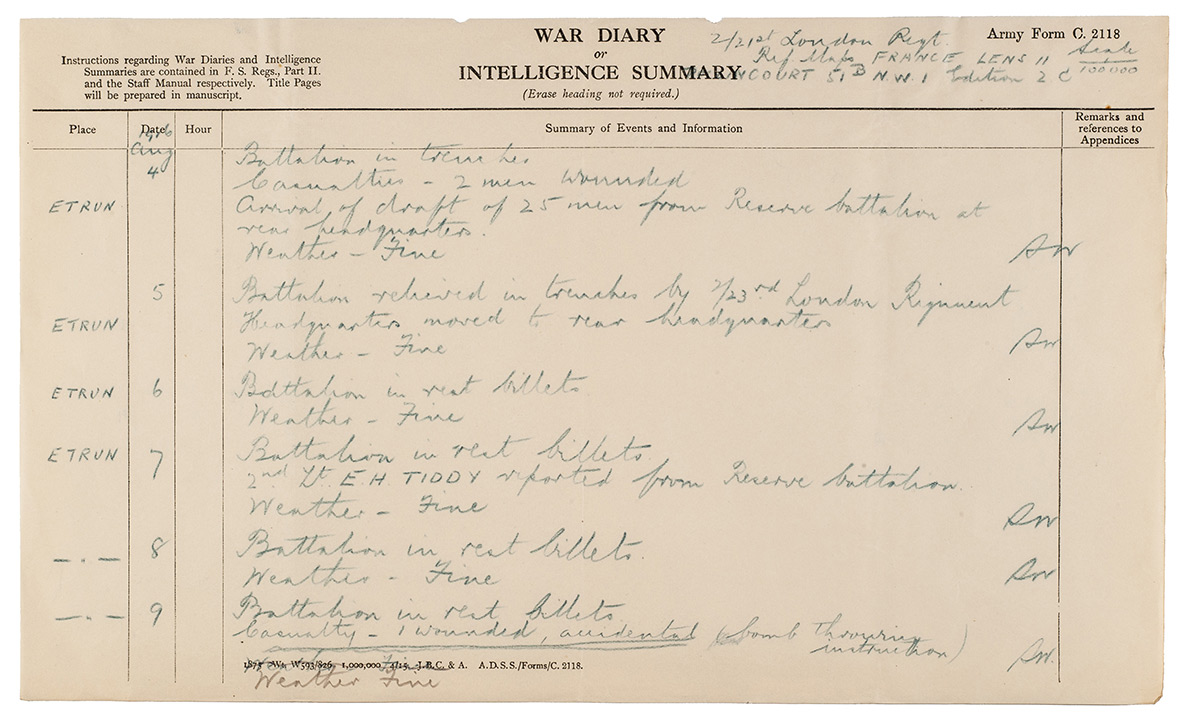 WAR DIARY
or
INTELLIGENCE SUMMARY.
(Erase heading not required.)
Instructions regarding War Diaries and Intelligence
Summaries are contained in F. S. Regs., Part II.
and the Staff Manual respectively. Title Pages
will be prepared in manuscript.
2/21st London Regt.
Ref. Maps FRANCE LENS 11 Scale 1/100000
COURT 51B N.W. 1 Edition 2 C
Army Form C. 2118
Place Date Hour Summary of Events and Information Remarks and references to Appendices
1916
Aug
4 Battalion in trenches
Casualties - 2 men wounded
ETRUN Arrival of draft of 25 men from Reserve battalion at
rear headquarters.
Weather - Fine
5 Battalion relieved in trenches by 2/23rd London Regiment
ETRUN Headquarters moved to rear headquarters
Weather - Fine
ETRUN 6 Battalion in rest billets
Weather - Fine
ETRUN 7 Battalion in rest billets.
2nd Lt. E H TIDDY reported from Reserve battalion.
Weather - Fine
— " — 8 Battalion in rest billets.
Weather - Fine
— " — 9 Battalion in rest billets
Casualty - 1 wounded, accidental (bomb throwing
instruction)
1875 Wt. W593/826 1,000,000 4/15 J.B.C. & A. A.D.S.S./Forms/C. 2118.
Weather Fine